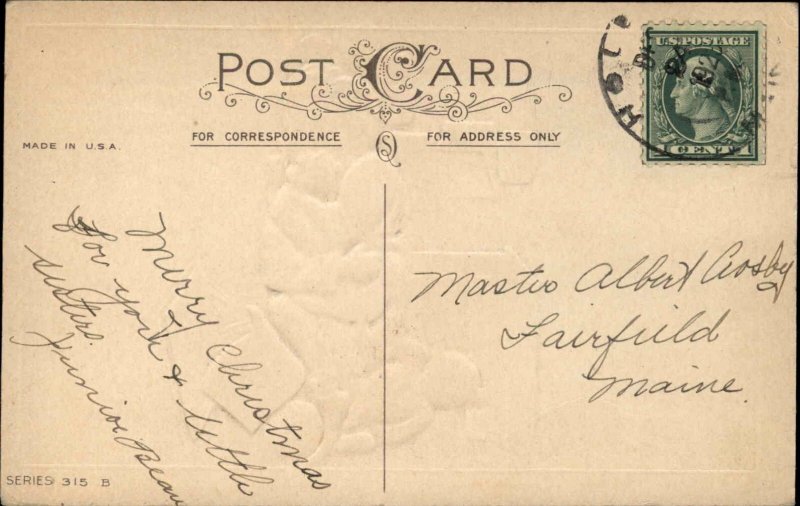 POST CARD
FOR CORRESPONDENCE
FOR ADDRESS ONLY
MADE IN U.S.A.
U.S. POSTAGE
1 CENT 1
Merry Christmas
for you & little
sisters.
Junior Bean
Master Albert Crosby
Fairfield
Maine.
SERIES 315 B